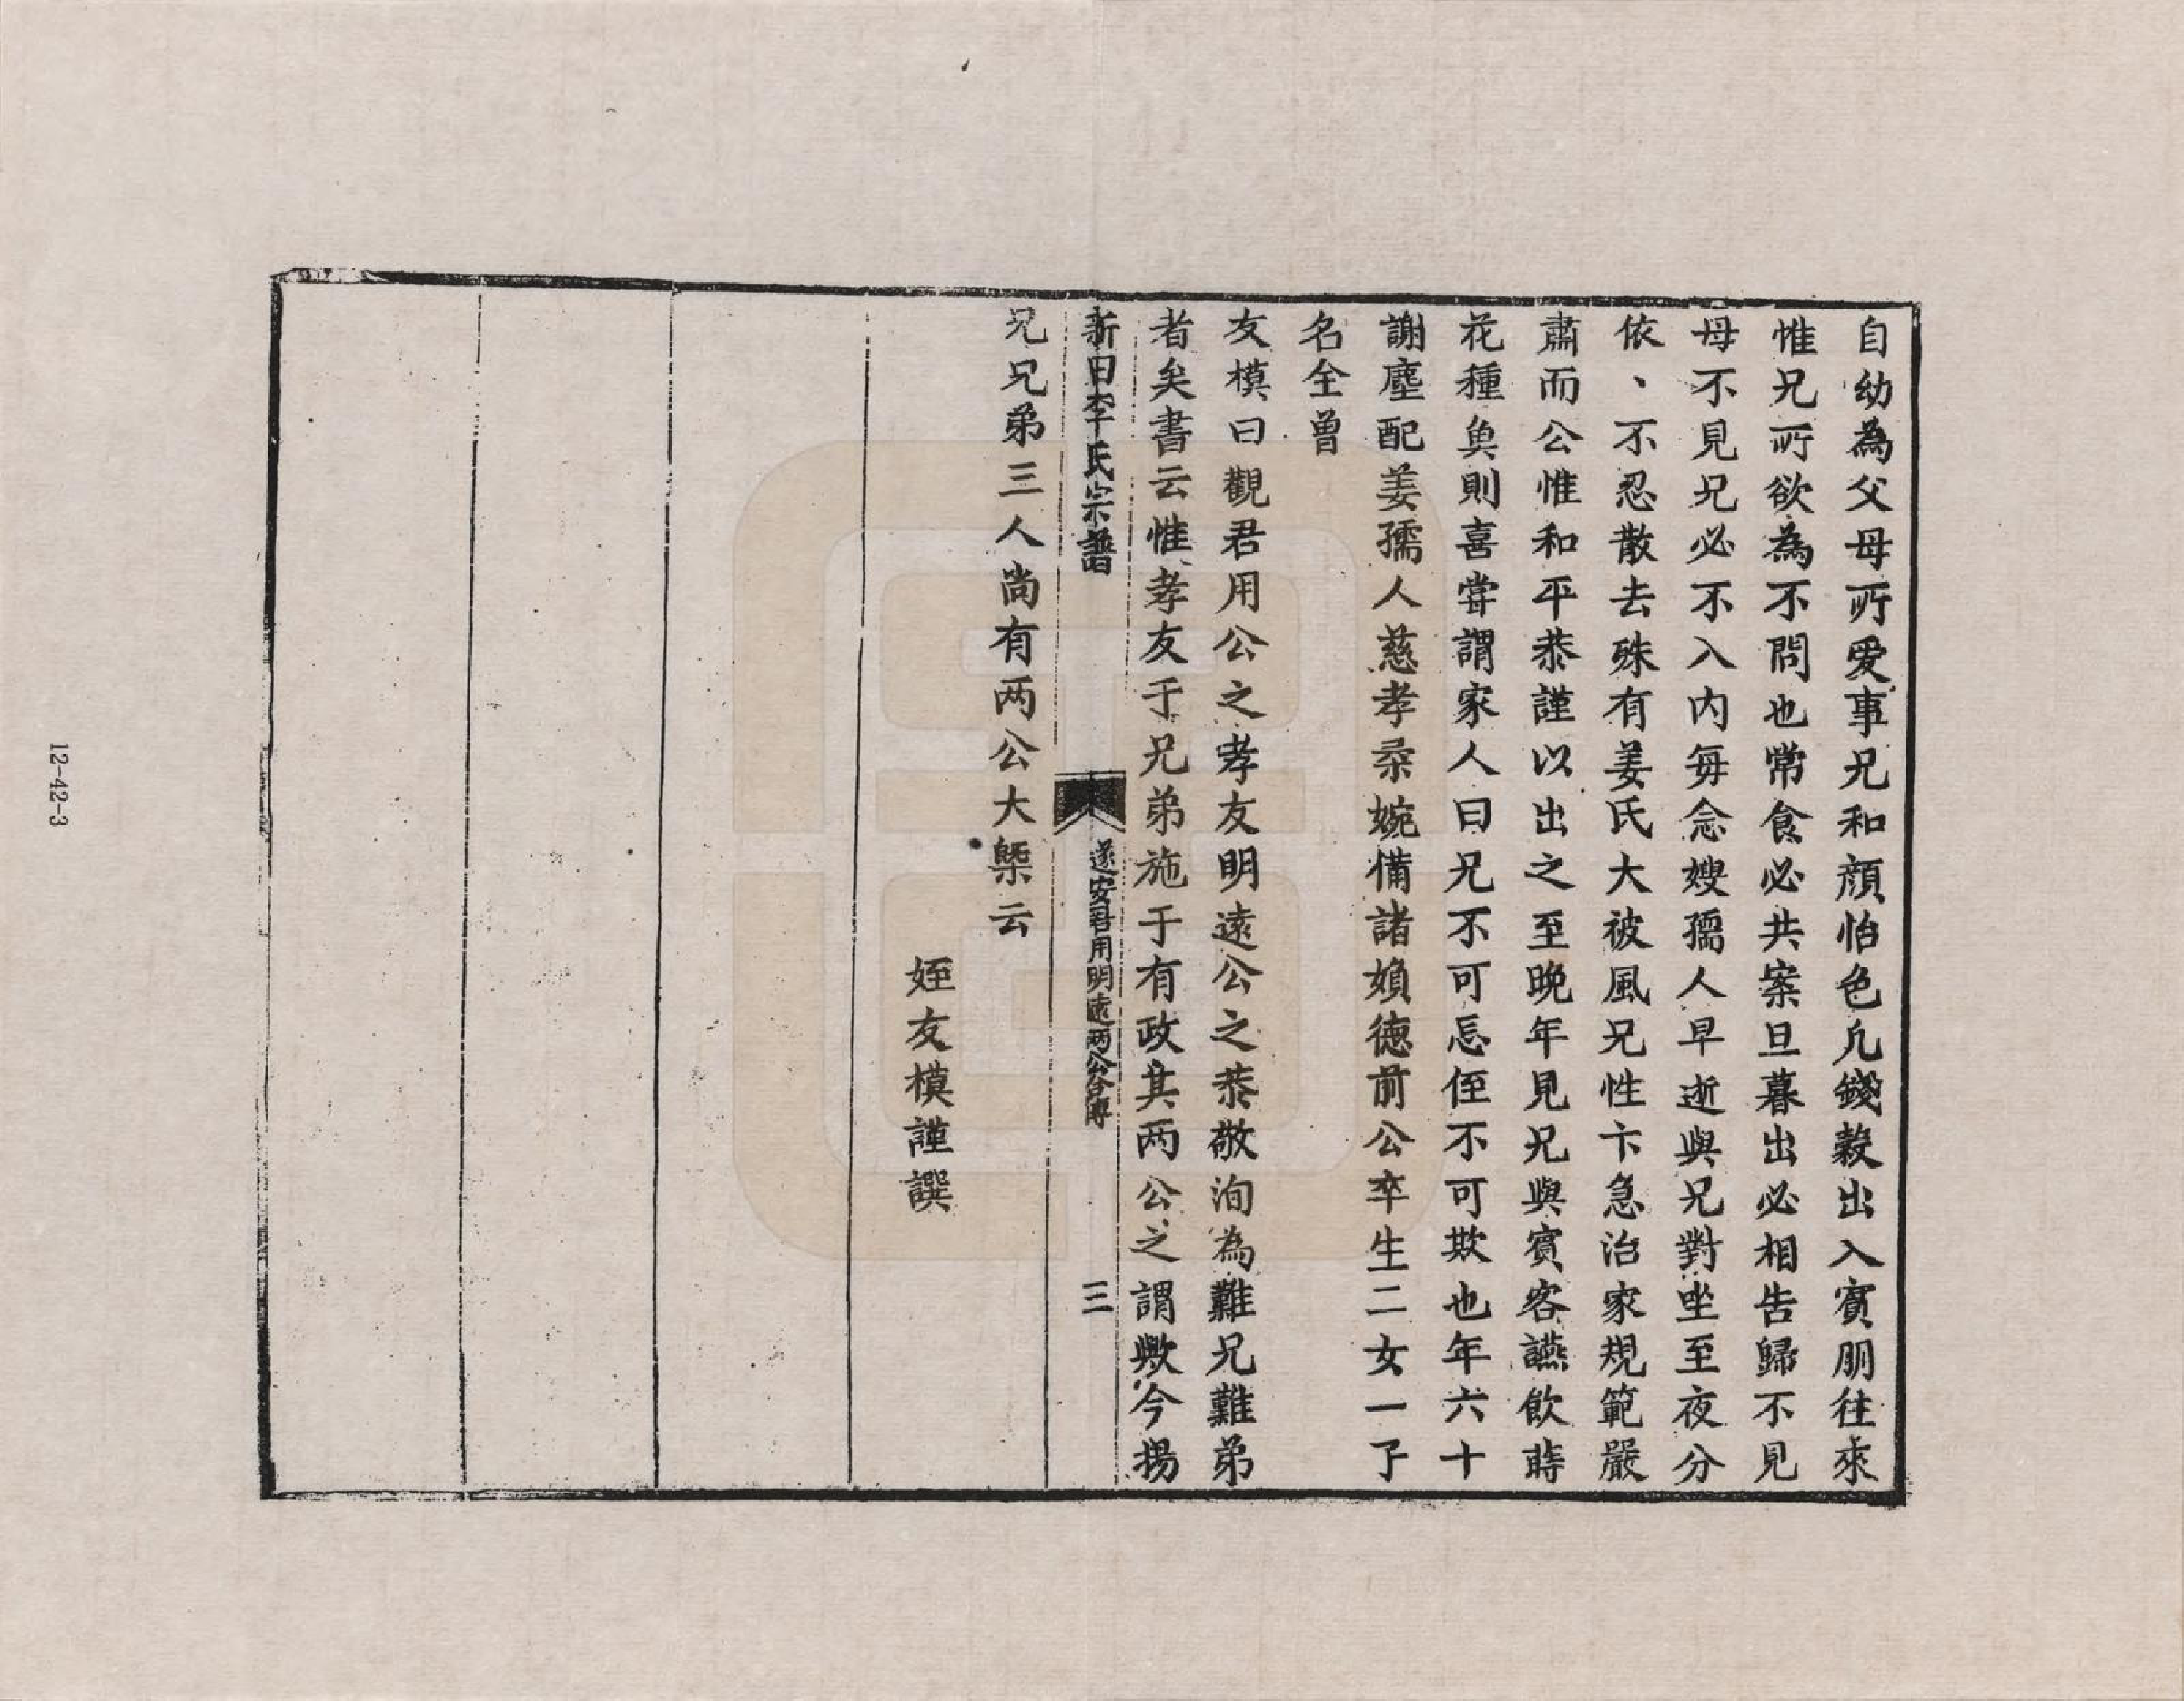 自幼為父母所爱事兄和顔怡色凢錢穀出入賓朋往來
惟兄所欲為不問也常食必共案旦暮出必相告歸不見
母不見兄必不入内每念嫂孺人早逝與兄對坐至夜分
依、不忍散去殊有姜氏大被風兄性卞急治家規範嚴
肅而公惟和平恭謹以出之至晚年見兄與賓客讌飲蒔
花種魚則喜嘗謂家人曰兄不可忘侄不可欺也年六十
謝塵配姜孺人慈孝柔婉備諸媍德前公卒生二女一子
名全曾
友模曰觀君用公之孝友明遠公之恭敬洵為難兄難弟
者矣書云惟孝友于兄弟施于有政其两公之謂歟今揚
新田李氏宗譜
遂安君用明遠两公合傳
三
兄兄弟三人尚有两公大槩云
姪友模謹譔
12-42-3